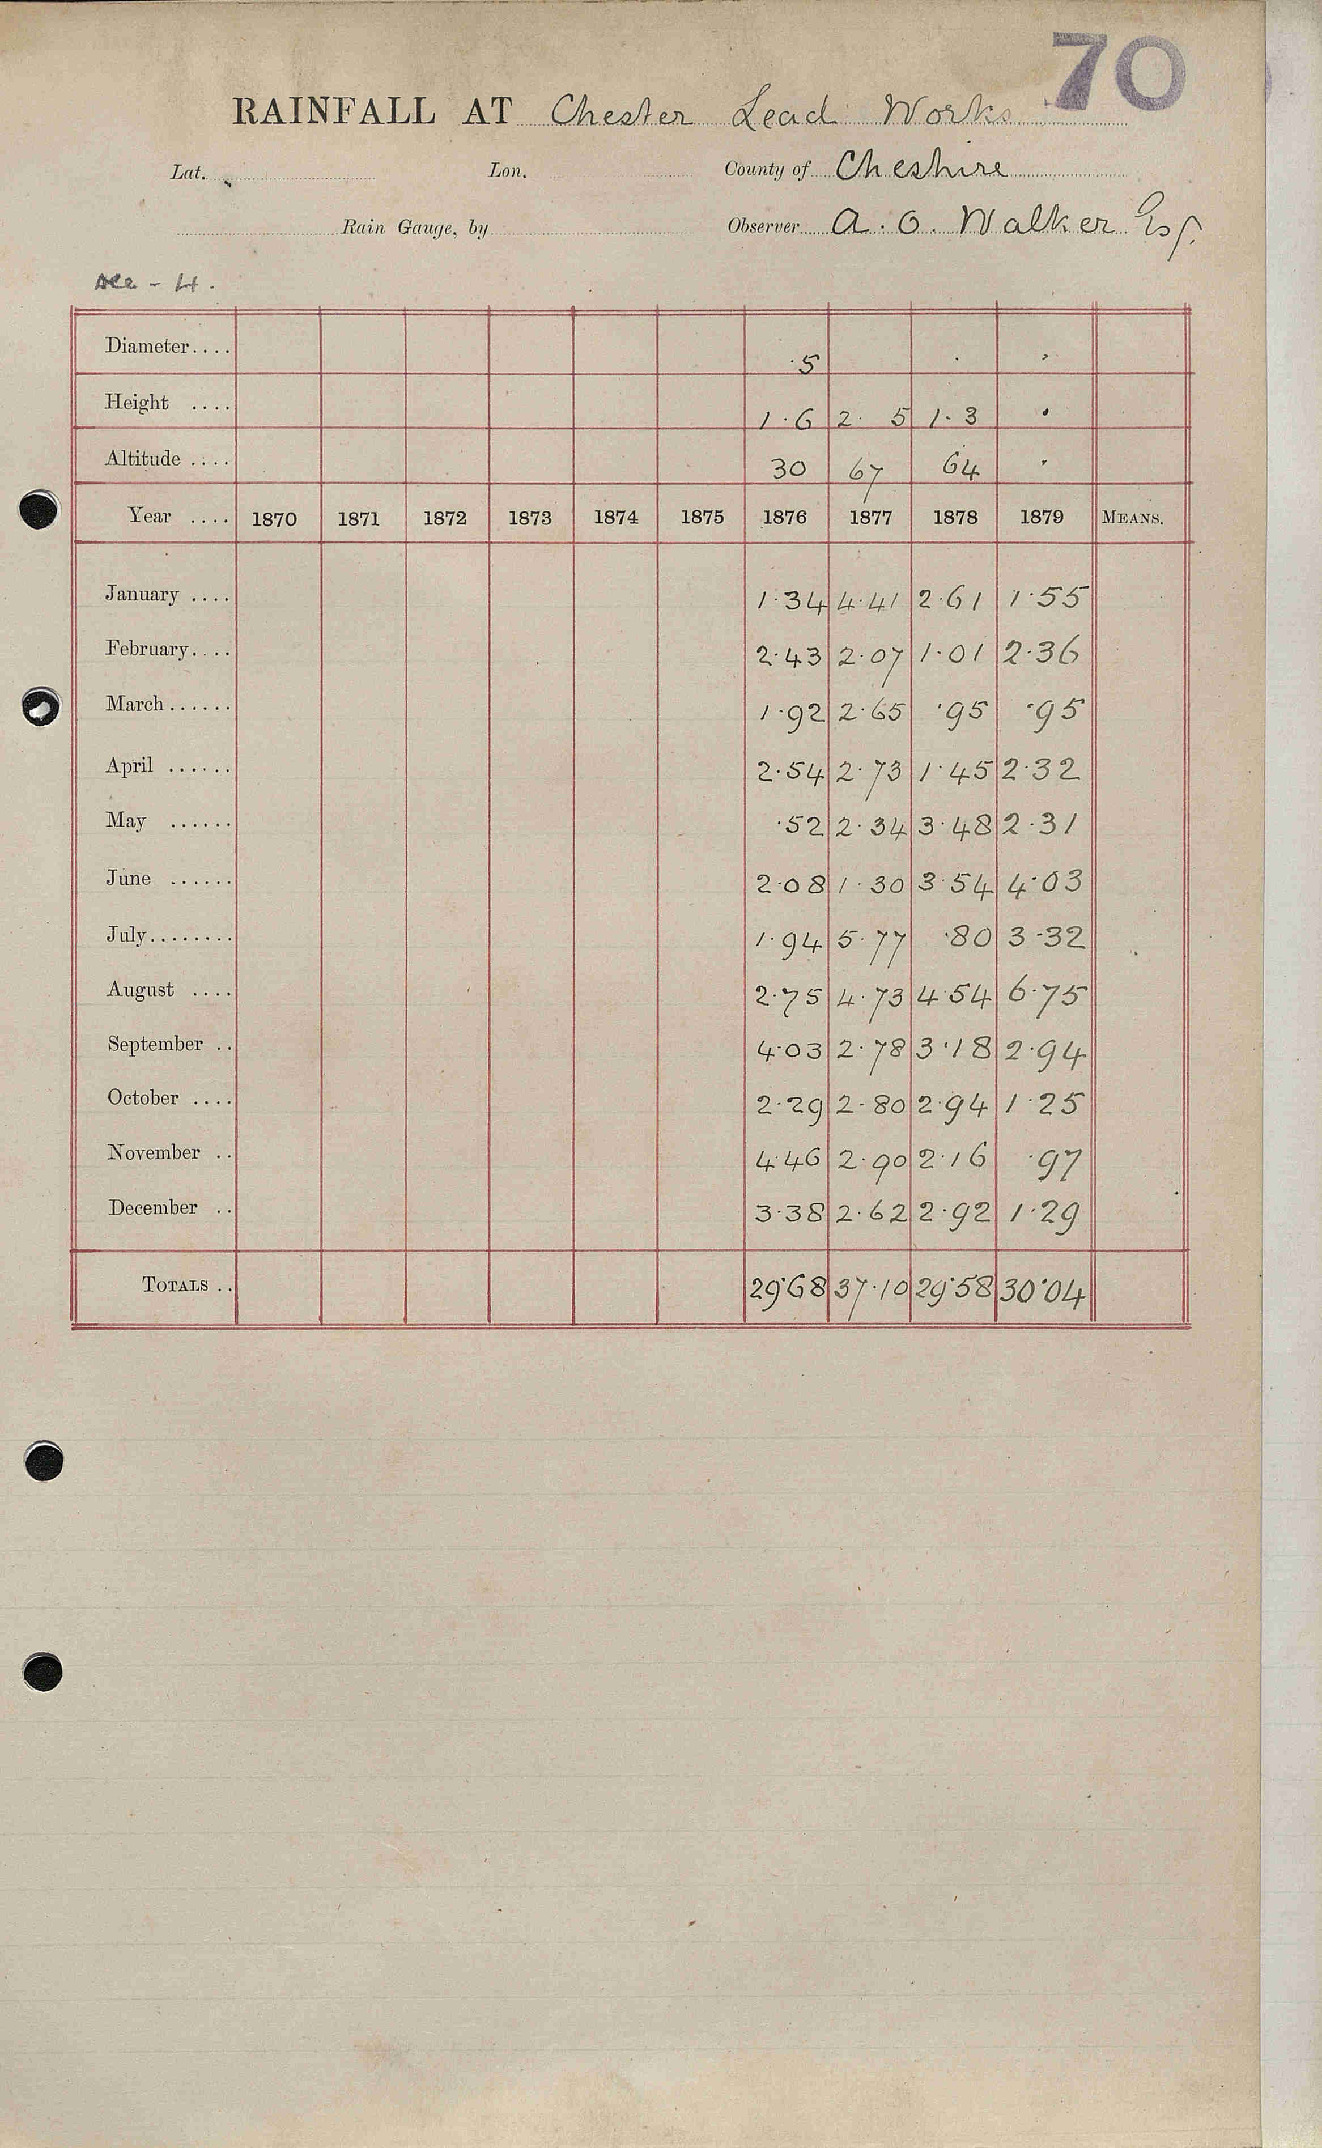 70
RAINFALL AT Chester Lead Works
Lat. Lon. County of Cheshire
Rain Gauge, by Observer A. O. Walker Esq.
- 4.
Diameter.... ·5 · ·
Height .... 1·6 2· 5 1·3 ·
Altitude .... 30 67 64 ·
Year .... 1870 1871 1872 1873 1874 1875 1876 1877 1878 1879 MEANS.
January .... 1·34 4·41 2·61 1·55
February.... 2·43 2·07 1·01 2·36
March...... 1·92 2·65 ·95 ·95
April ...... 2·54 2·73 1·45 2·32
May ...... ·52 2·34 3·48 2·31
June ...... 2·08 1·30 3·54 4·03
July........ 1·94 5·77 ·80 3·32
August .... 2·75 4·73 4·54 6·75
September .. 4·03 2·78 3·18 2·94
October .... 2·29 2·80 2·94 1·25
November .. 4·46 2·90 2·16 ·97
December .. 3·38 2·62 2·92 1·29
TOTALS .. 29·68 37·10 29·58 30·04